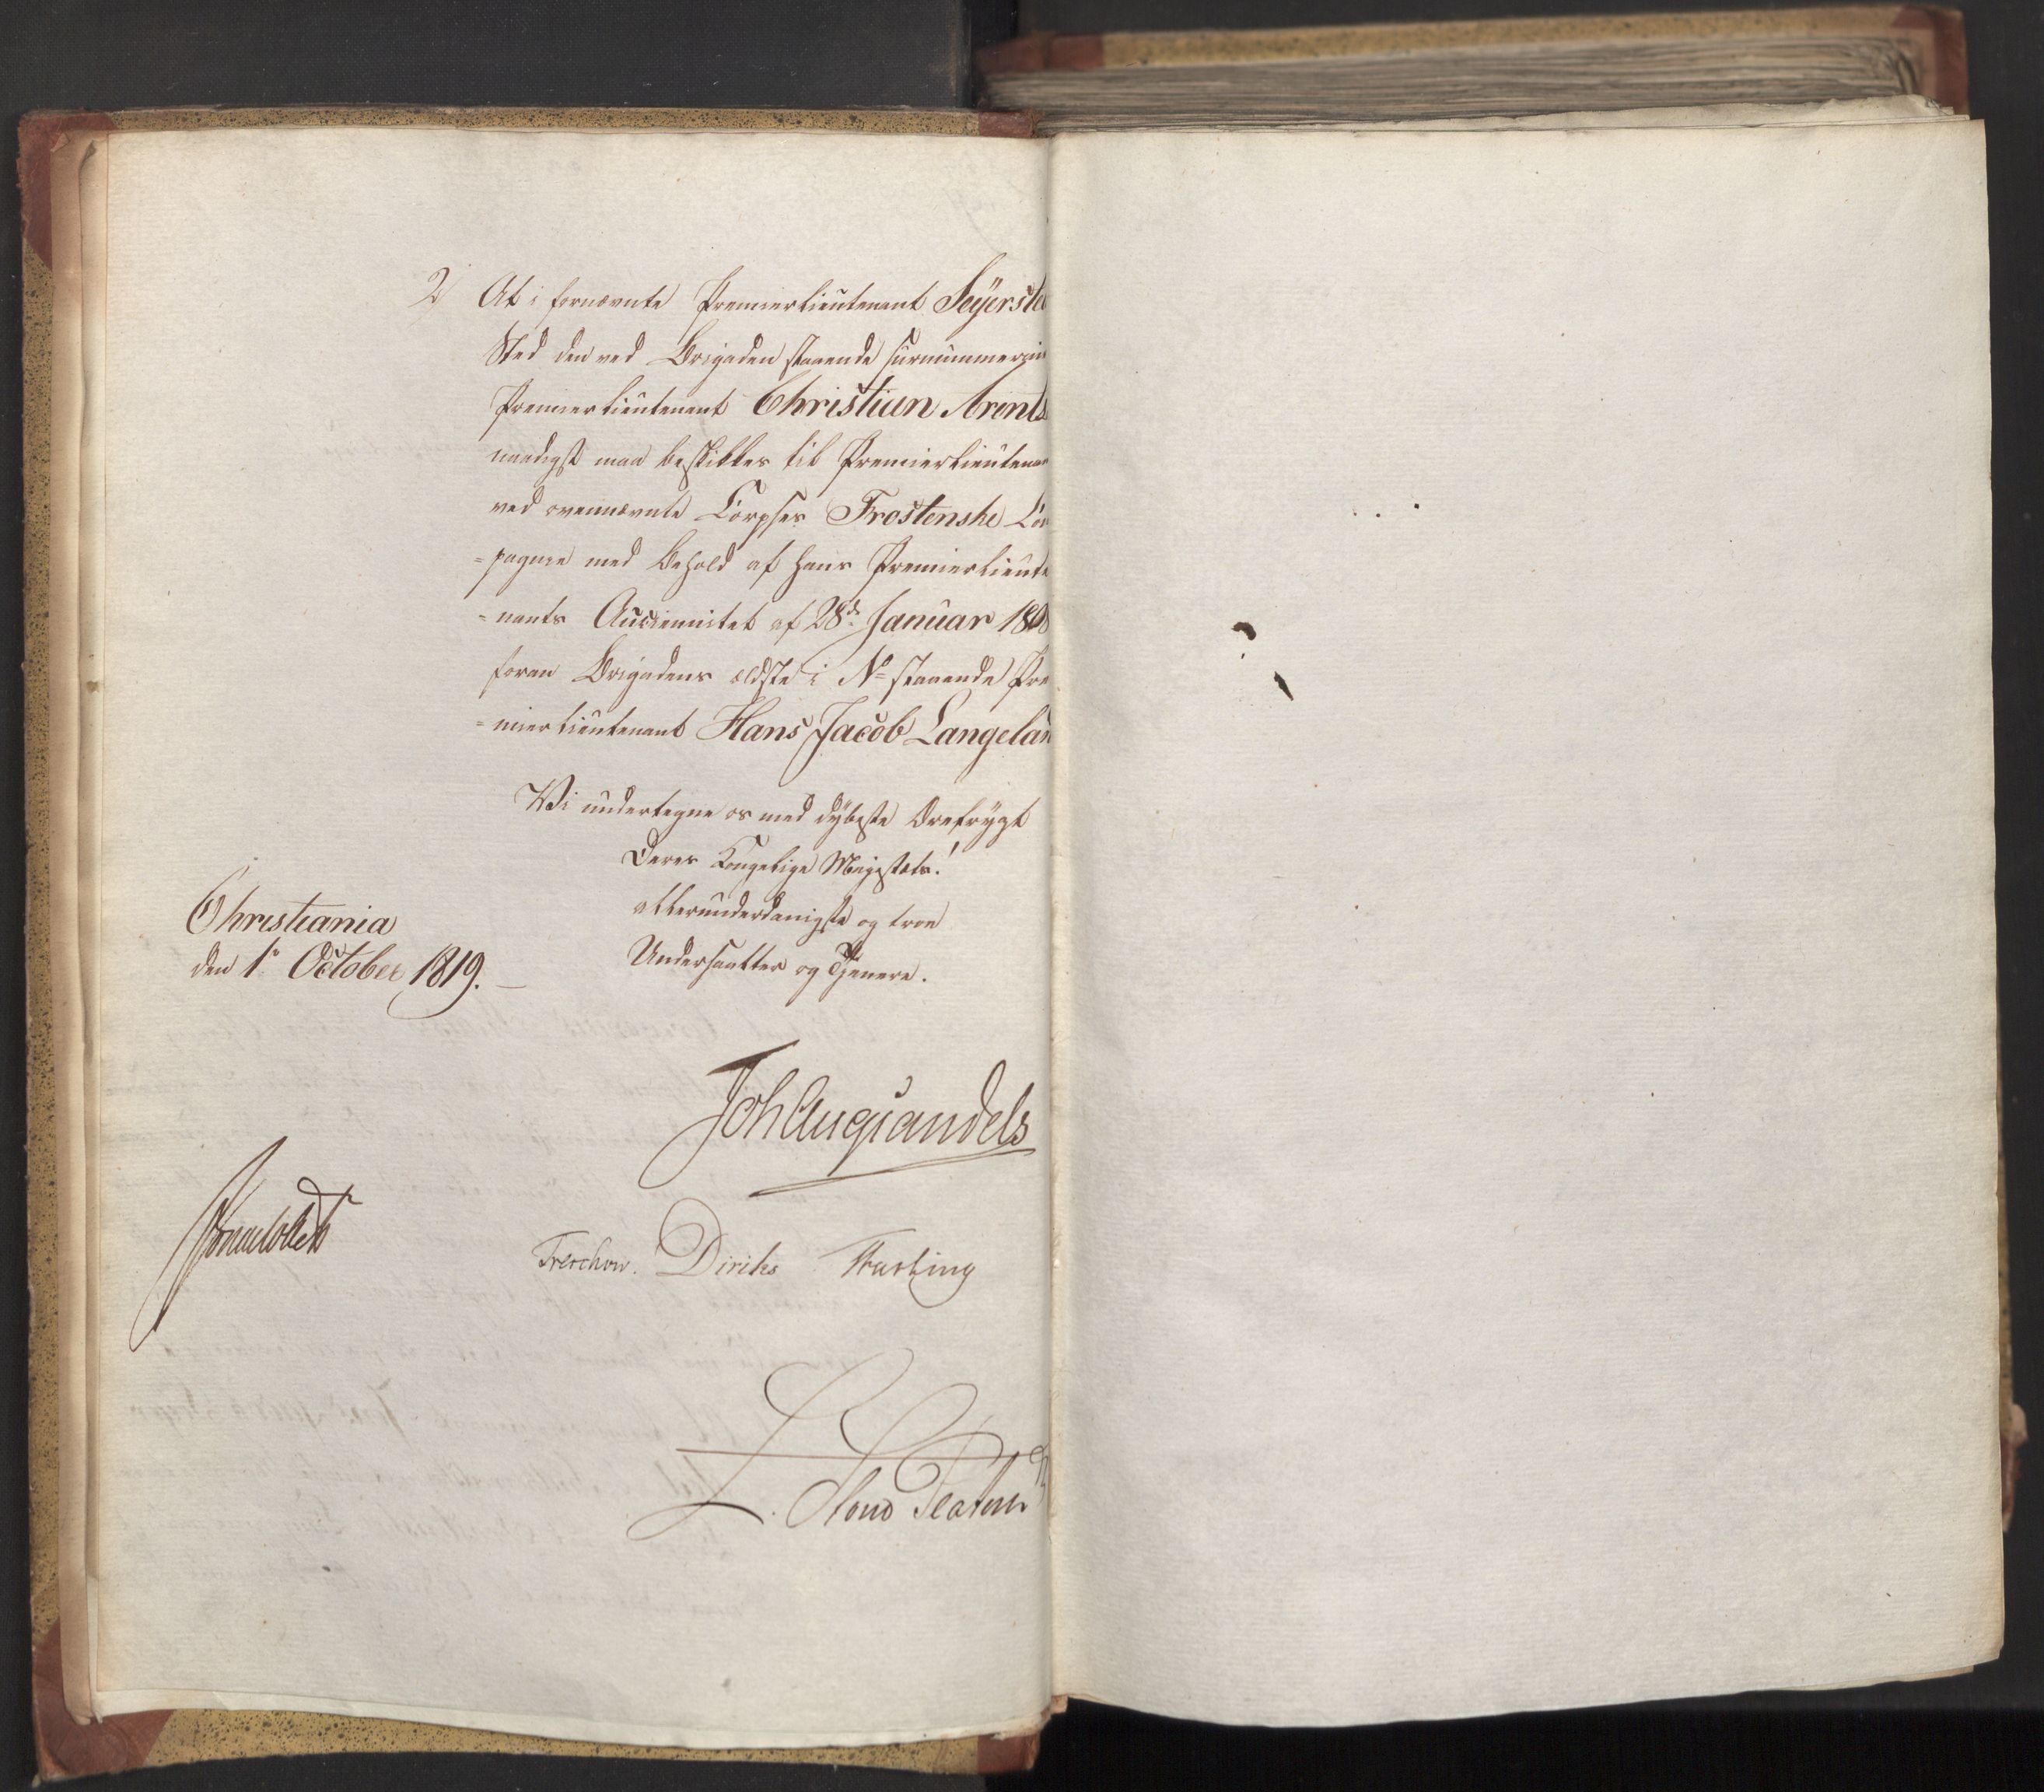 2 At i fornævnte Premierlieutenant Seÿerste
Sted den ved Brigaden staaende surnummerair
Premierlieutenant Christian Arents
naadigst maa beskikkes til Premierlieutenan
ved ovennævnte Corpses Frostenske Co
=pagnie med Behold af hans Premierlieute
=nants Anciennitet af 28de Januar
foran Brigadens ældste i No staaende Pre
=mierlieutenant Hans Jacob Langelan
Wi undertegne os med dÿbeste Ærefrÿgt
Deres Kongelige Majestæts!
allerunderdanigste og troe
Undersaatter og Tjenere.
Christiania
den 1e October 1819.
Joh Aug Sandels
Treschow. Diriks Fasting
L. Stoud Platou